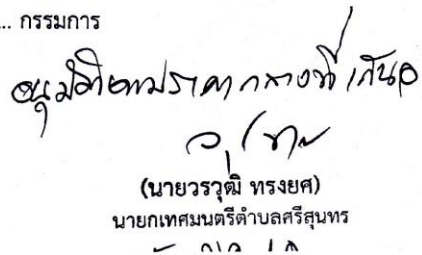 ... กรรมการ
อนุมัติตามราคากลางที่เสนอ
(นายวรวุฒิ ทรงยศ)
นายกเทศมนตรีตำบลศรีสุนทร